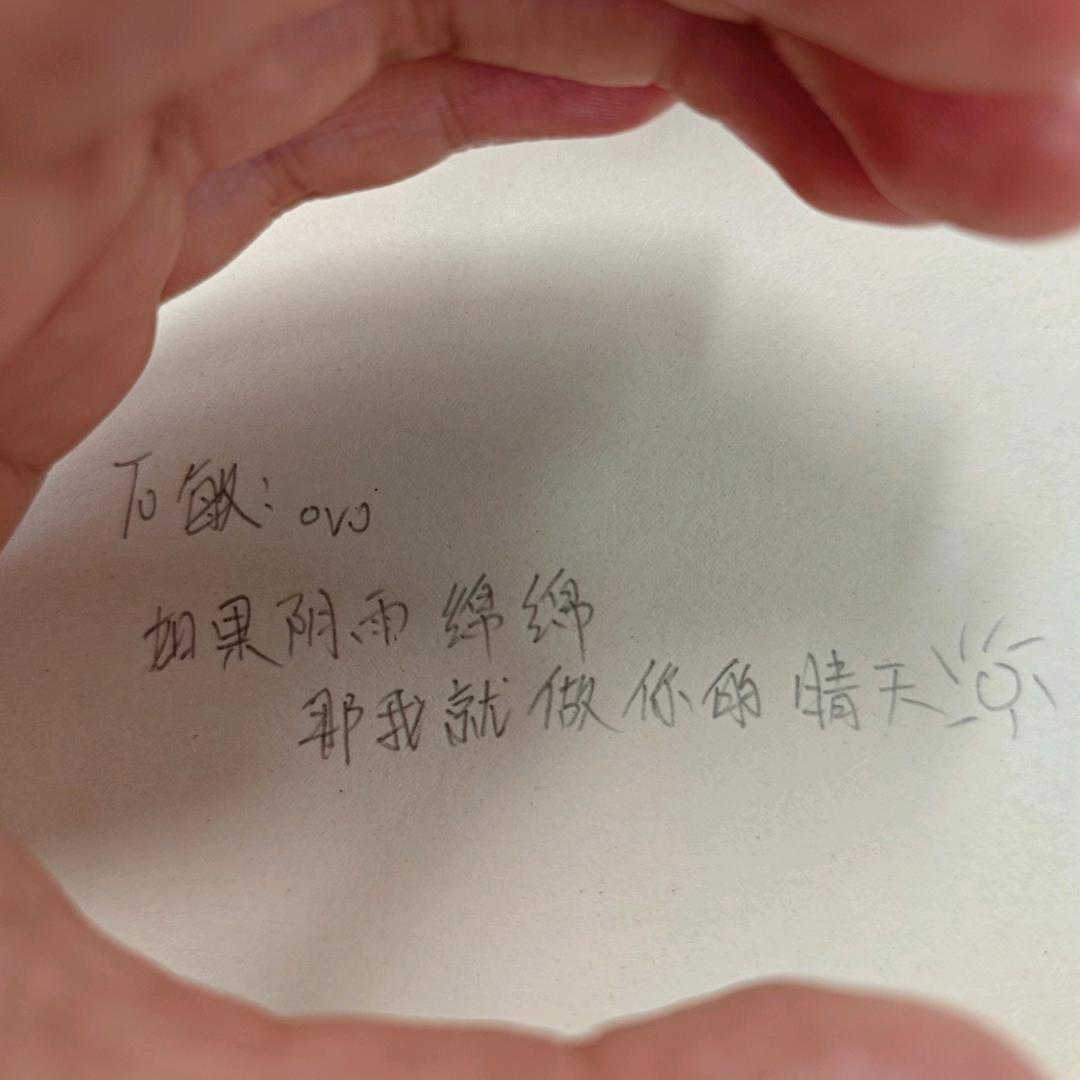 To 敏: ovo
如果阴雨绵绵
那我就做你的晴天